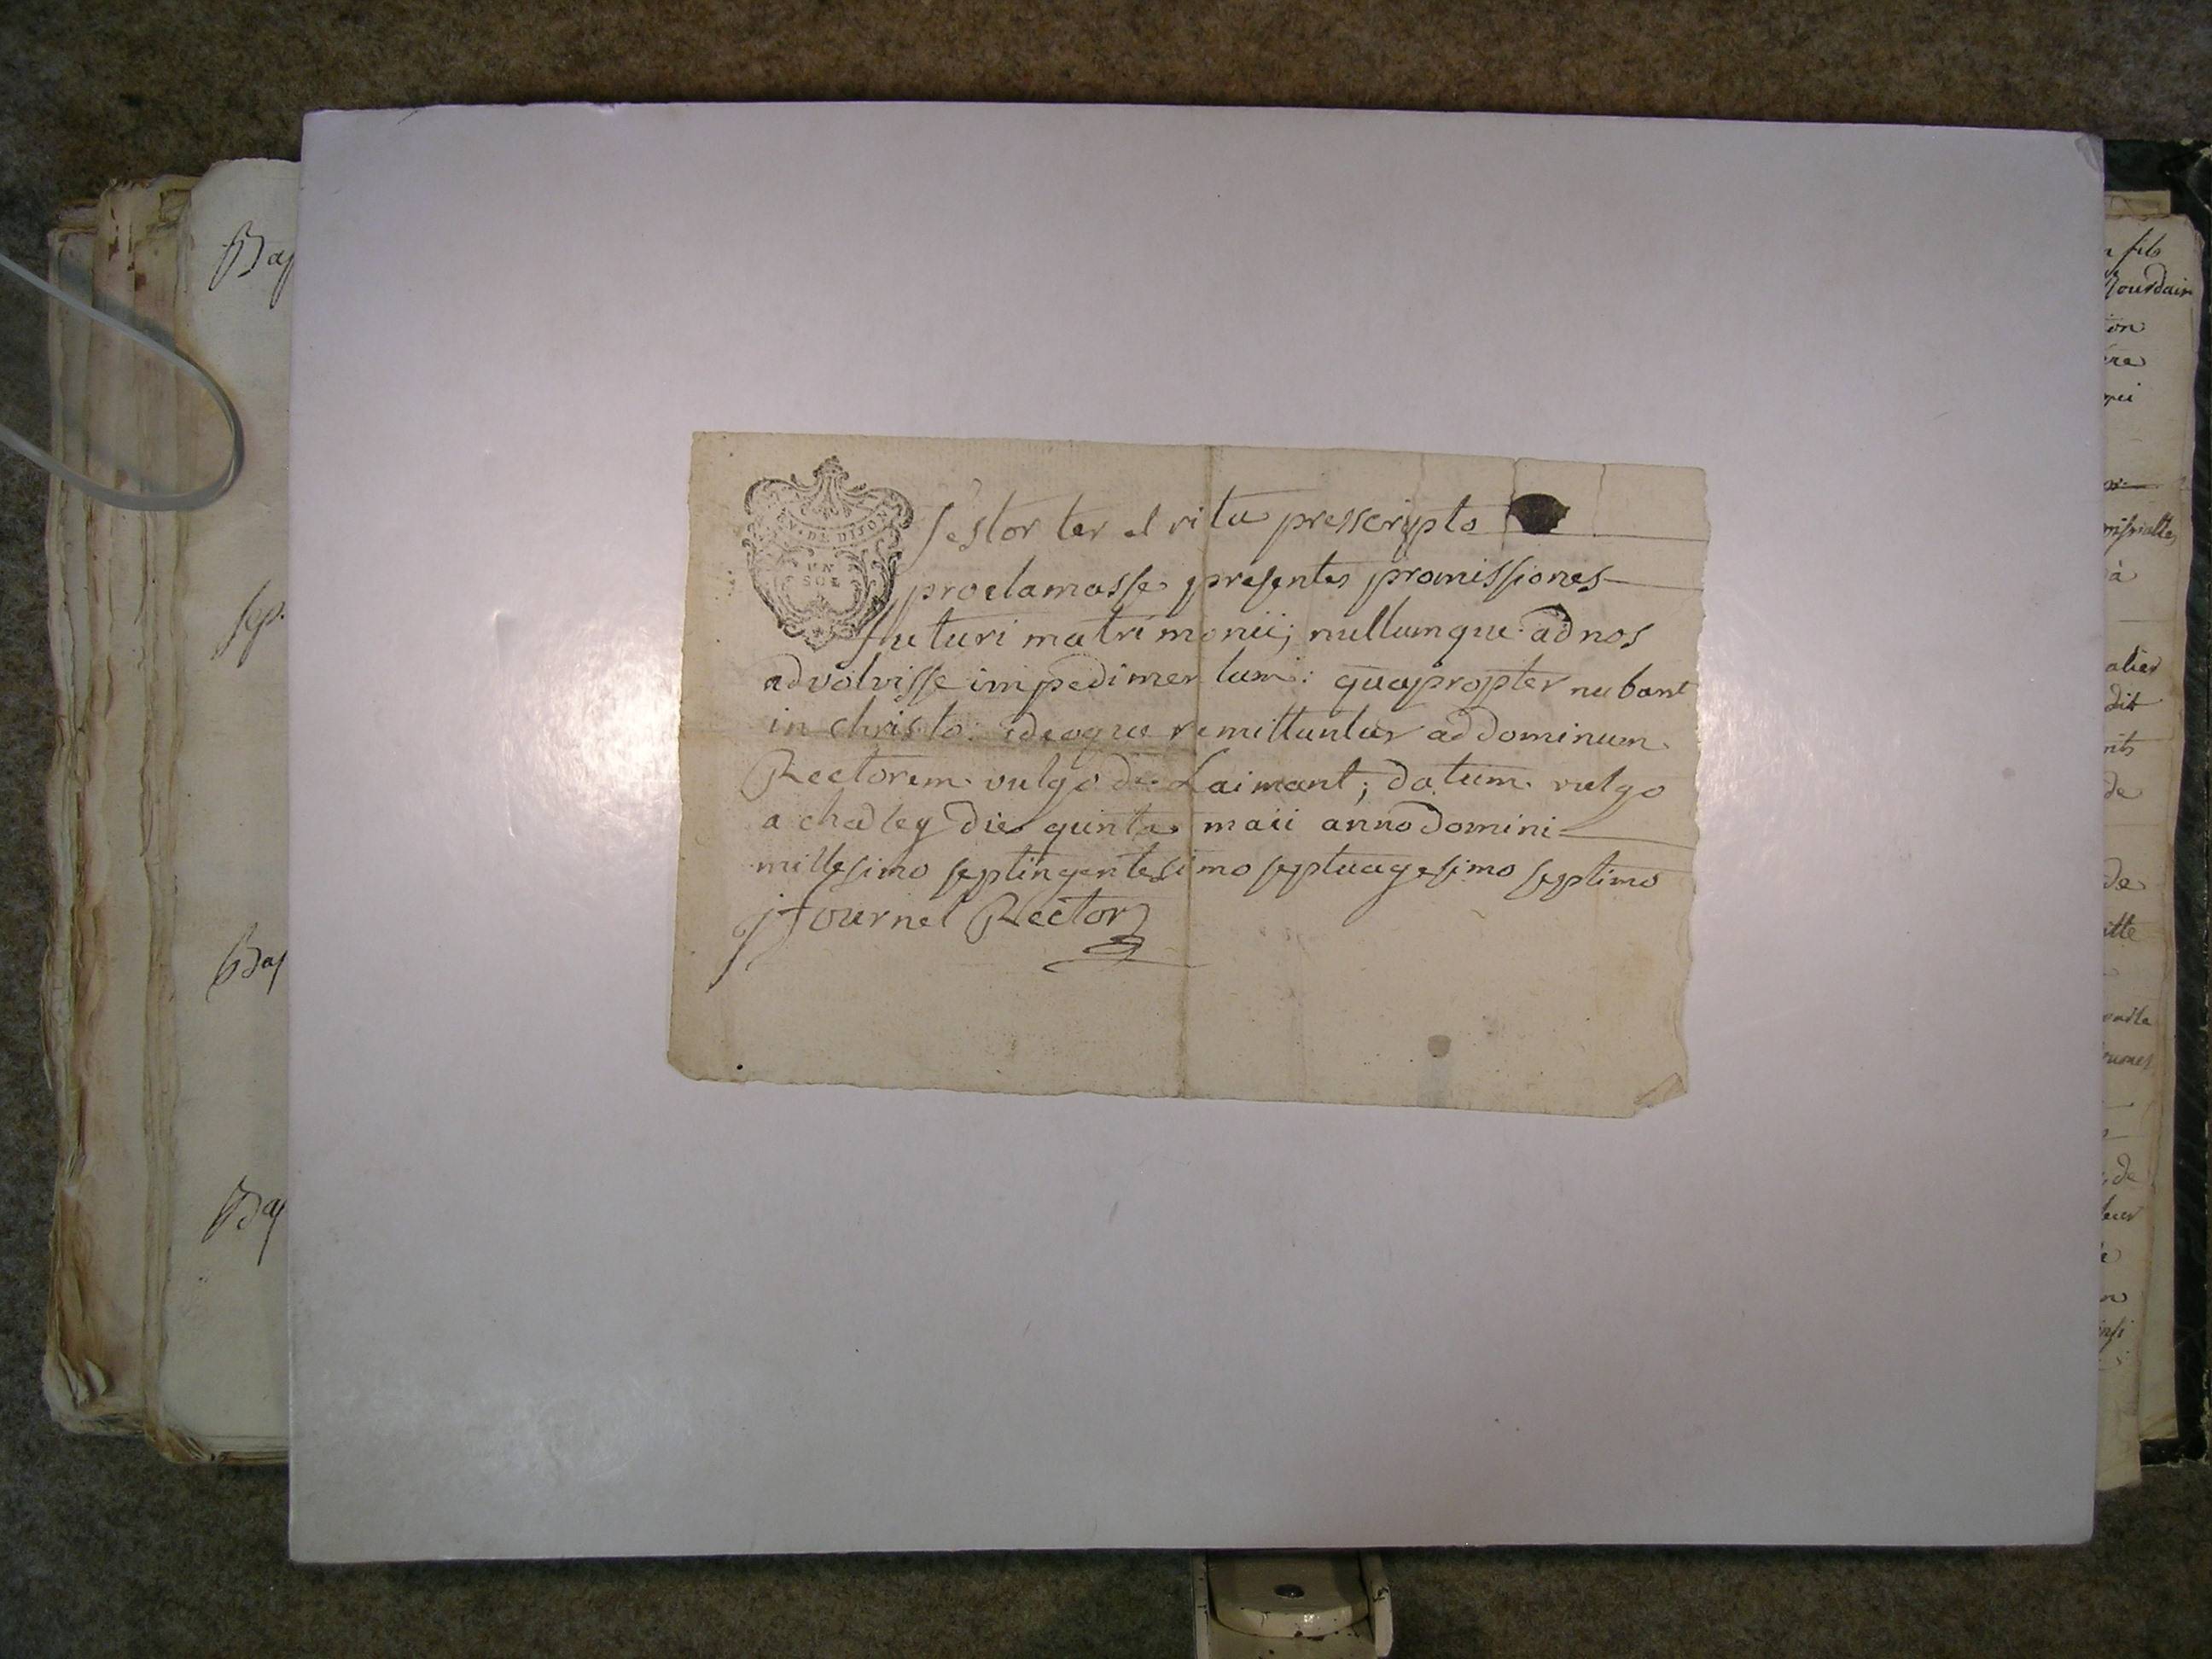 GEN. DE DIJON
UN
SOL
testor ter et ritu presscripto
proclamasse presentes promissiones
futuri matrimonii; nullumque ad nos
advolvisse impedimentum: quapropter nubant
in christo. ideoque remittuntur ad dominum
Rectorem vulgo de Laimant; datum vulgo
a chadley die quinta maii anno domini
millesimo septingentesimo septuagesimo septimo
j Fournel Rector
Bap
sep.
Bap
Bap
fils
Jourdain
ion
dit
de
de
itte
de